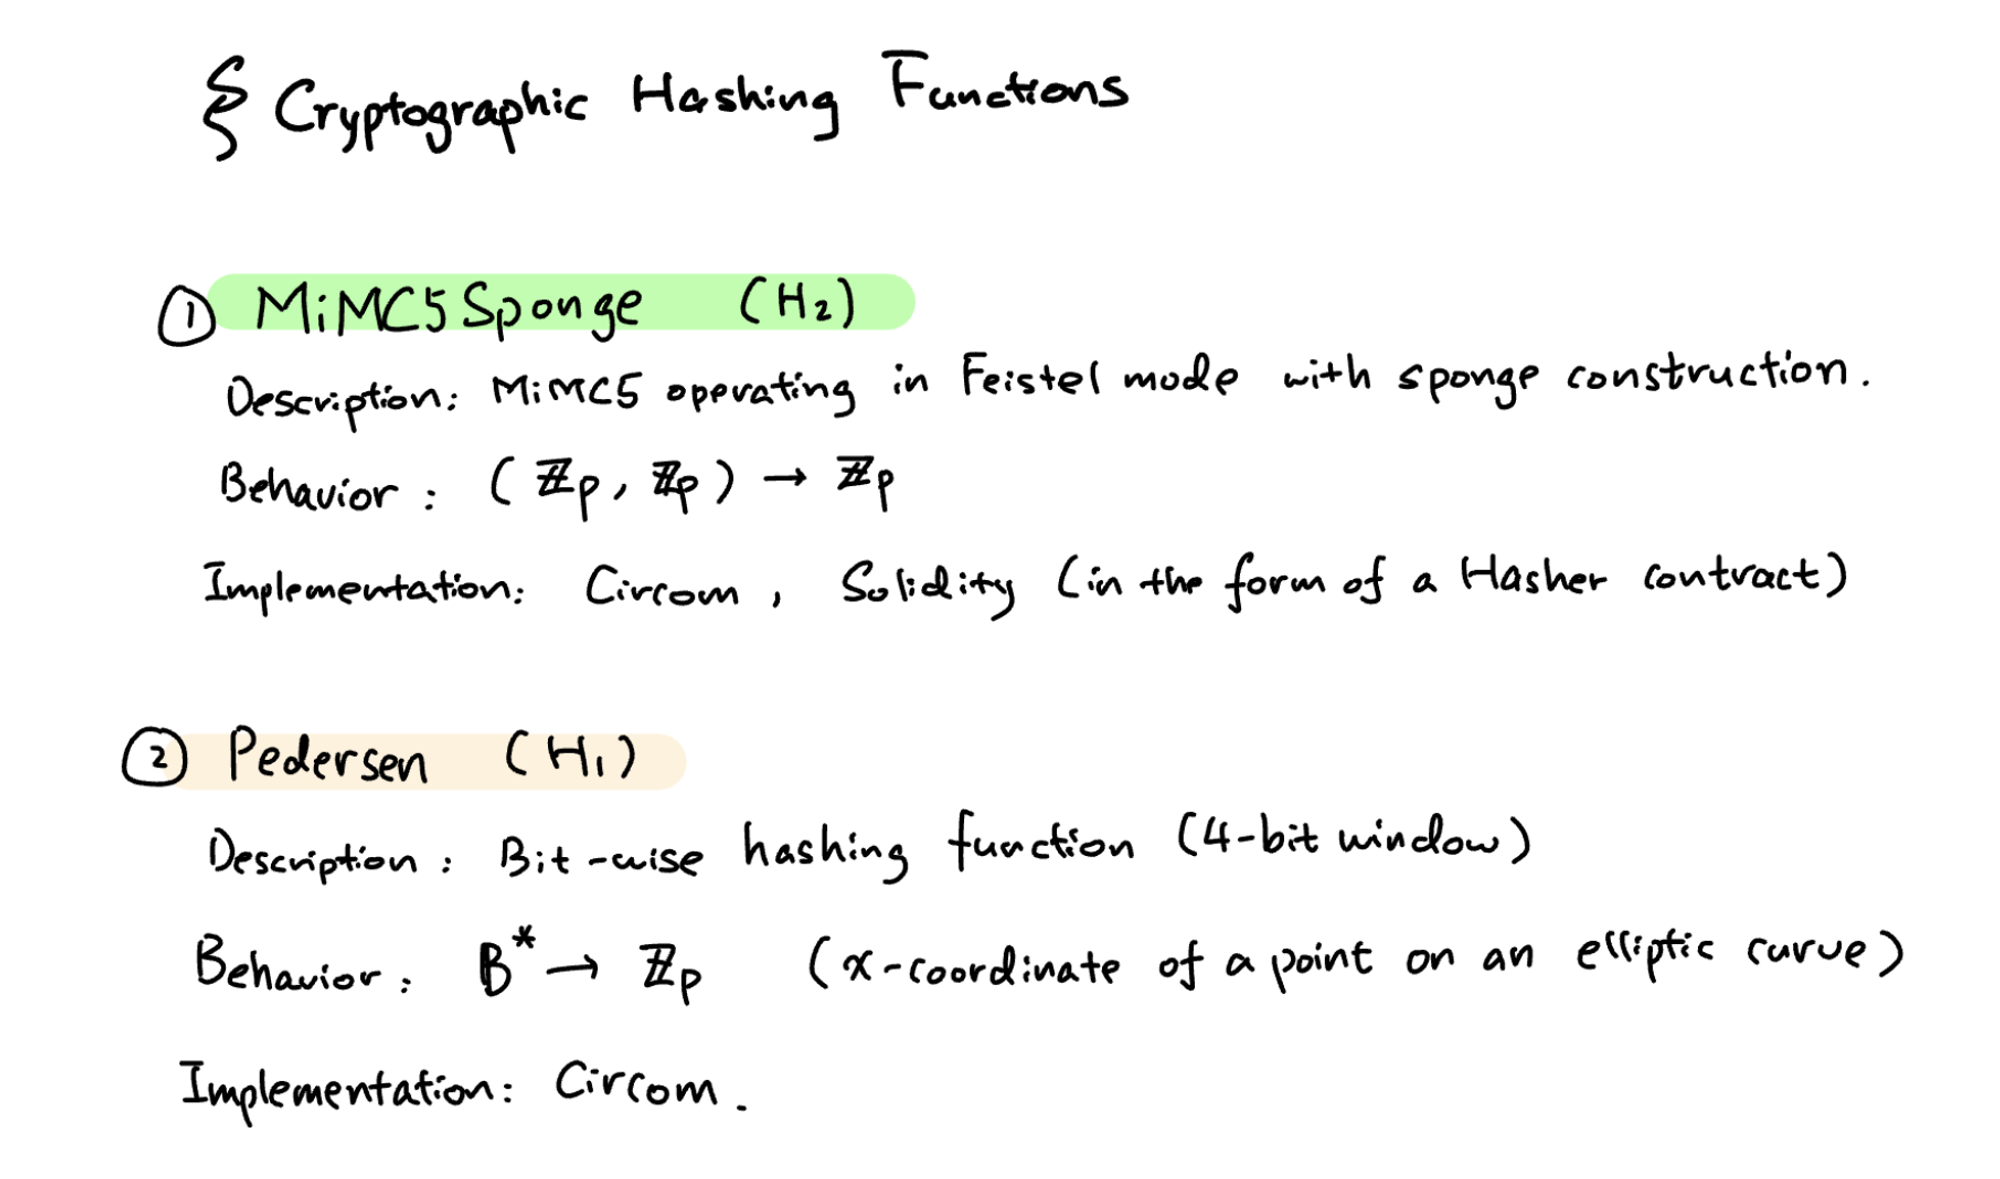 § Cryptographic Hashing Functions
① MiMC5Sponge (H₂)
Description: MiMC5 operating in Feistel mode with sponge construction.
Behavior: (ℤp, ℤp) → ℤp
Implementation: Circom, Solidity (in the form of a Hasher contract)
② Pedersen (H₁)
Description: Bit-wise hashing function (4-bit window)
Behavior: B* → ℤp (x-coordinate of a point on an elliptic curve)
Implementation: Circom.